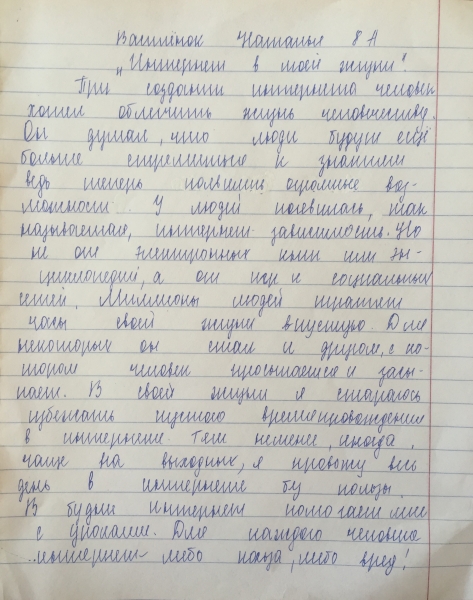 Василёнок Наталья 8 А
„Интернет в моей жизни".
При создании интернета человек
хотел облегчить жизнь человечеству.
Он думал, что люди будут ещё
больше стремиться к знаниям
ведь теперь появились огромные воз-
можности. У людей появилась, так
называемая, интернет зависимость. Но
не от электронных книг или эн-
циклопедий, а от игр и социальных
сетей. Миллионы людей тратят
часы своей жизни впустую. Для
некоторых он стал и другом, с ко-
тором человек просыпается и засы-
пает. В своей жизни я стараюсь
избежать пустого времяпровождения
в интернете. Тем неменее, иногда,
чаще на выходных, я провожу весь
день в интернете бу пользы.
В будни интернет помогает мне
с уроками. Для каждого человека
интернет либо польза, либо вред!